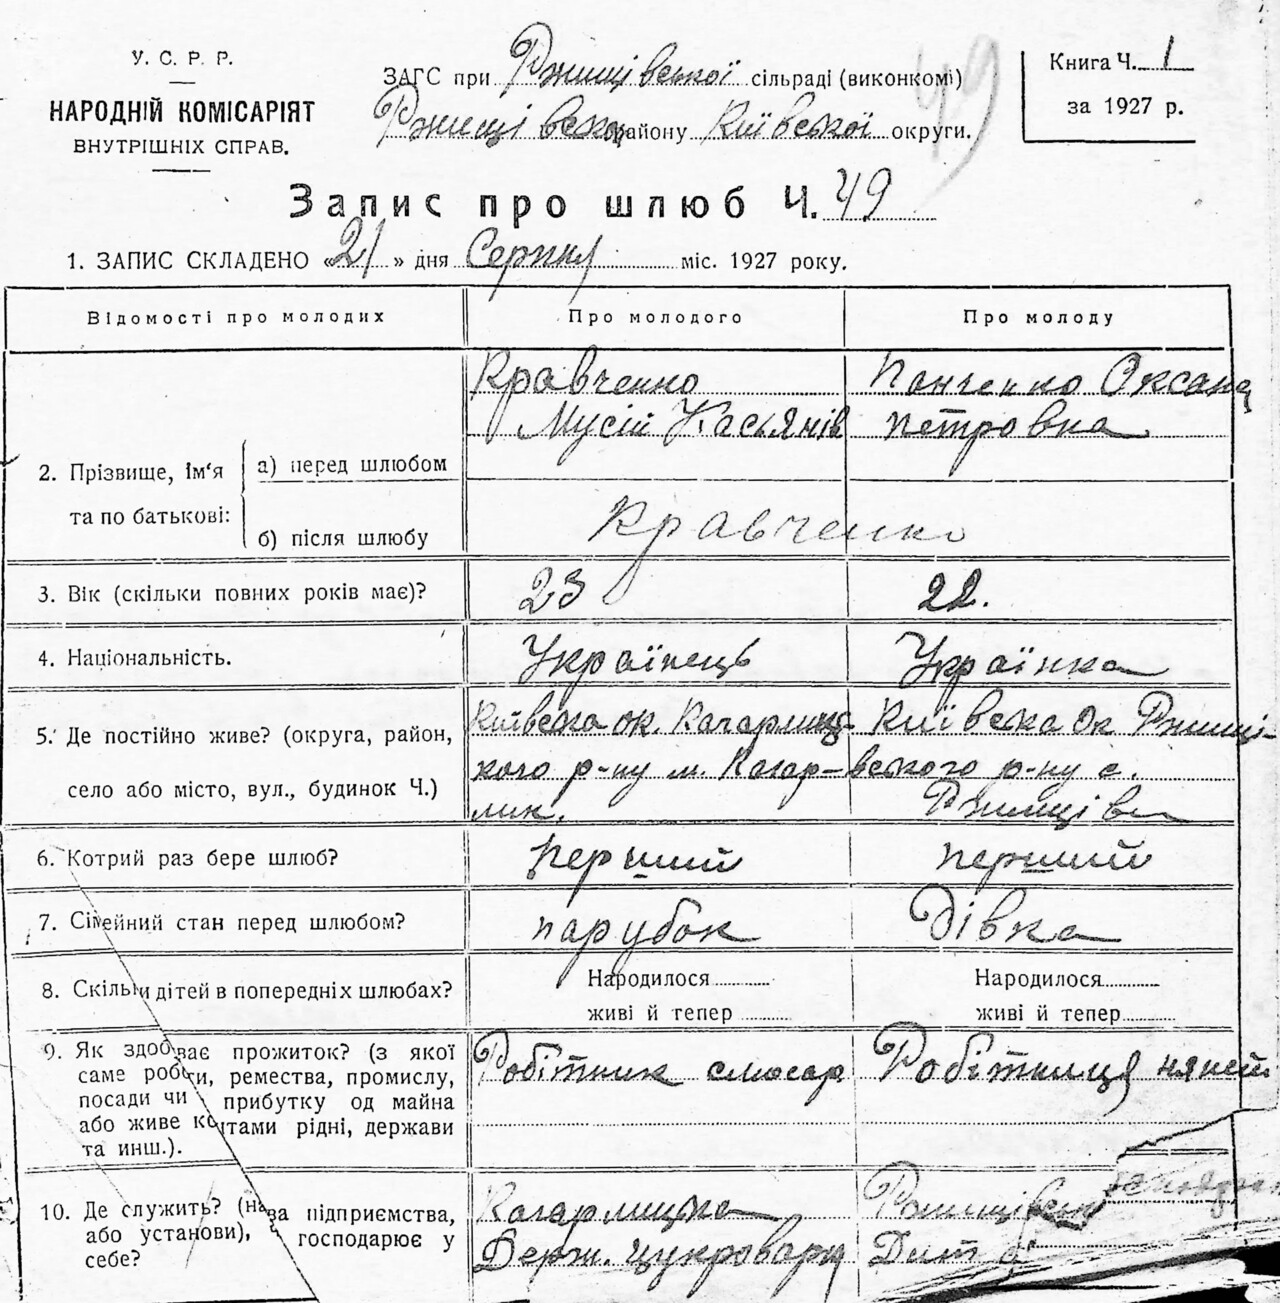 У. С. Р. Р.
НАРОДНІЙ КОМІСАРІЯТ
ВНУТРІШНІХ СПРАВ.
ЗАГС при Ржищівської сільраді (виконкомі)
Ржищівськ району Київської округи.
49
Книга Ч. 1
за 1927 р.
Запис про шлюб Ч. 49
1. ЗАПИС СКЛАДЕНО «21» дня Серпня міс. 1927 року.
Відомості про молодих
Про молодого
Про молоду
2. Прізвище, ім‘я
та по батькові:
а) перед шлюбом
Кравченко
Мусій Касьянів
Панченко Оксана
Петровна
б) після шлюбу
Кравченко
3. Вік (скільки повних років має)?
23
22.
4. Національність.
Українець
Українка
5. Де постійно живе? (округа, район,
село або місто, вул., будинок Ч.)
Київська ок. Кагарлиць-
кого р-ну м. Кагар-
лик.
Київська Ок Ржищі-
вського р-ну с.
6. Котрий раз бере шлюб?
перший
перший
7. Сімейний стан перед шлюбом?
парубок
Дівка
8. Скільки дітей в попередніх шлюбах?
Народилося
живі й тепер
Народилося
живі й тепер
9. Як здобуває прожиток? (з якої
саме роботи, ремества, промислу,
посади чи прибутку од майна
або живе коштами рідні, держави
та инш.).
Робітник слюсар
Робітниця
10. Де служить? (назва підприємства,
або установи), господарює у
себе?
Кагарлицька
Держ. цукроварня
Ржищівськ